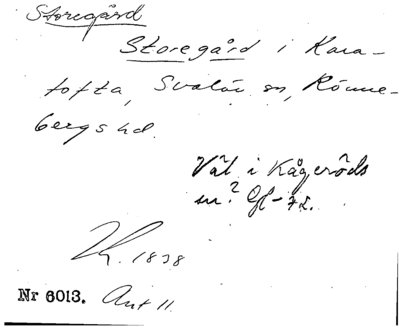 Storegård
Storegård i Kara-
tofta, Svalöv sn, Rönne-
bergs hd.
Väl i Kågeröds
sn? Gl-72.
Kh. 1838
Nr 6013. Ant 11.